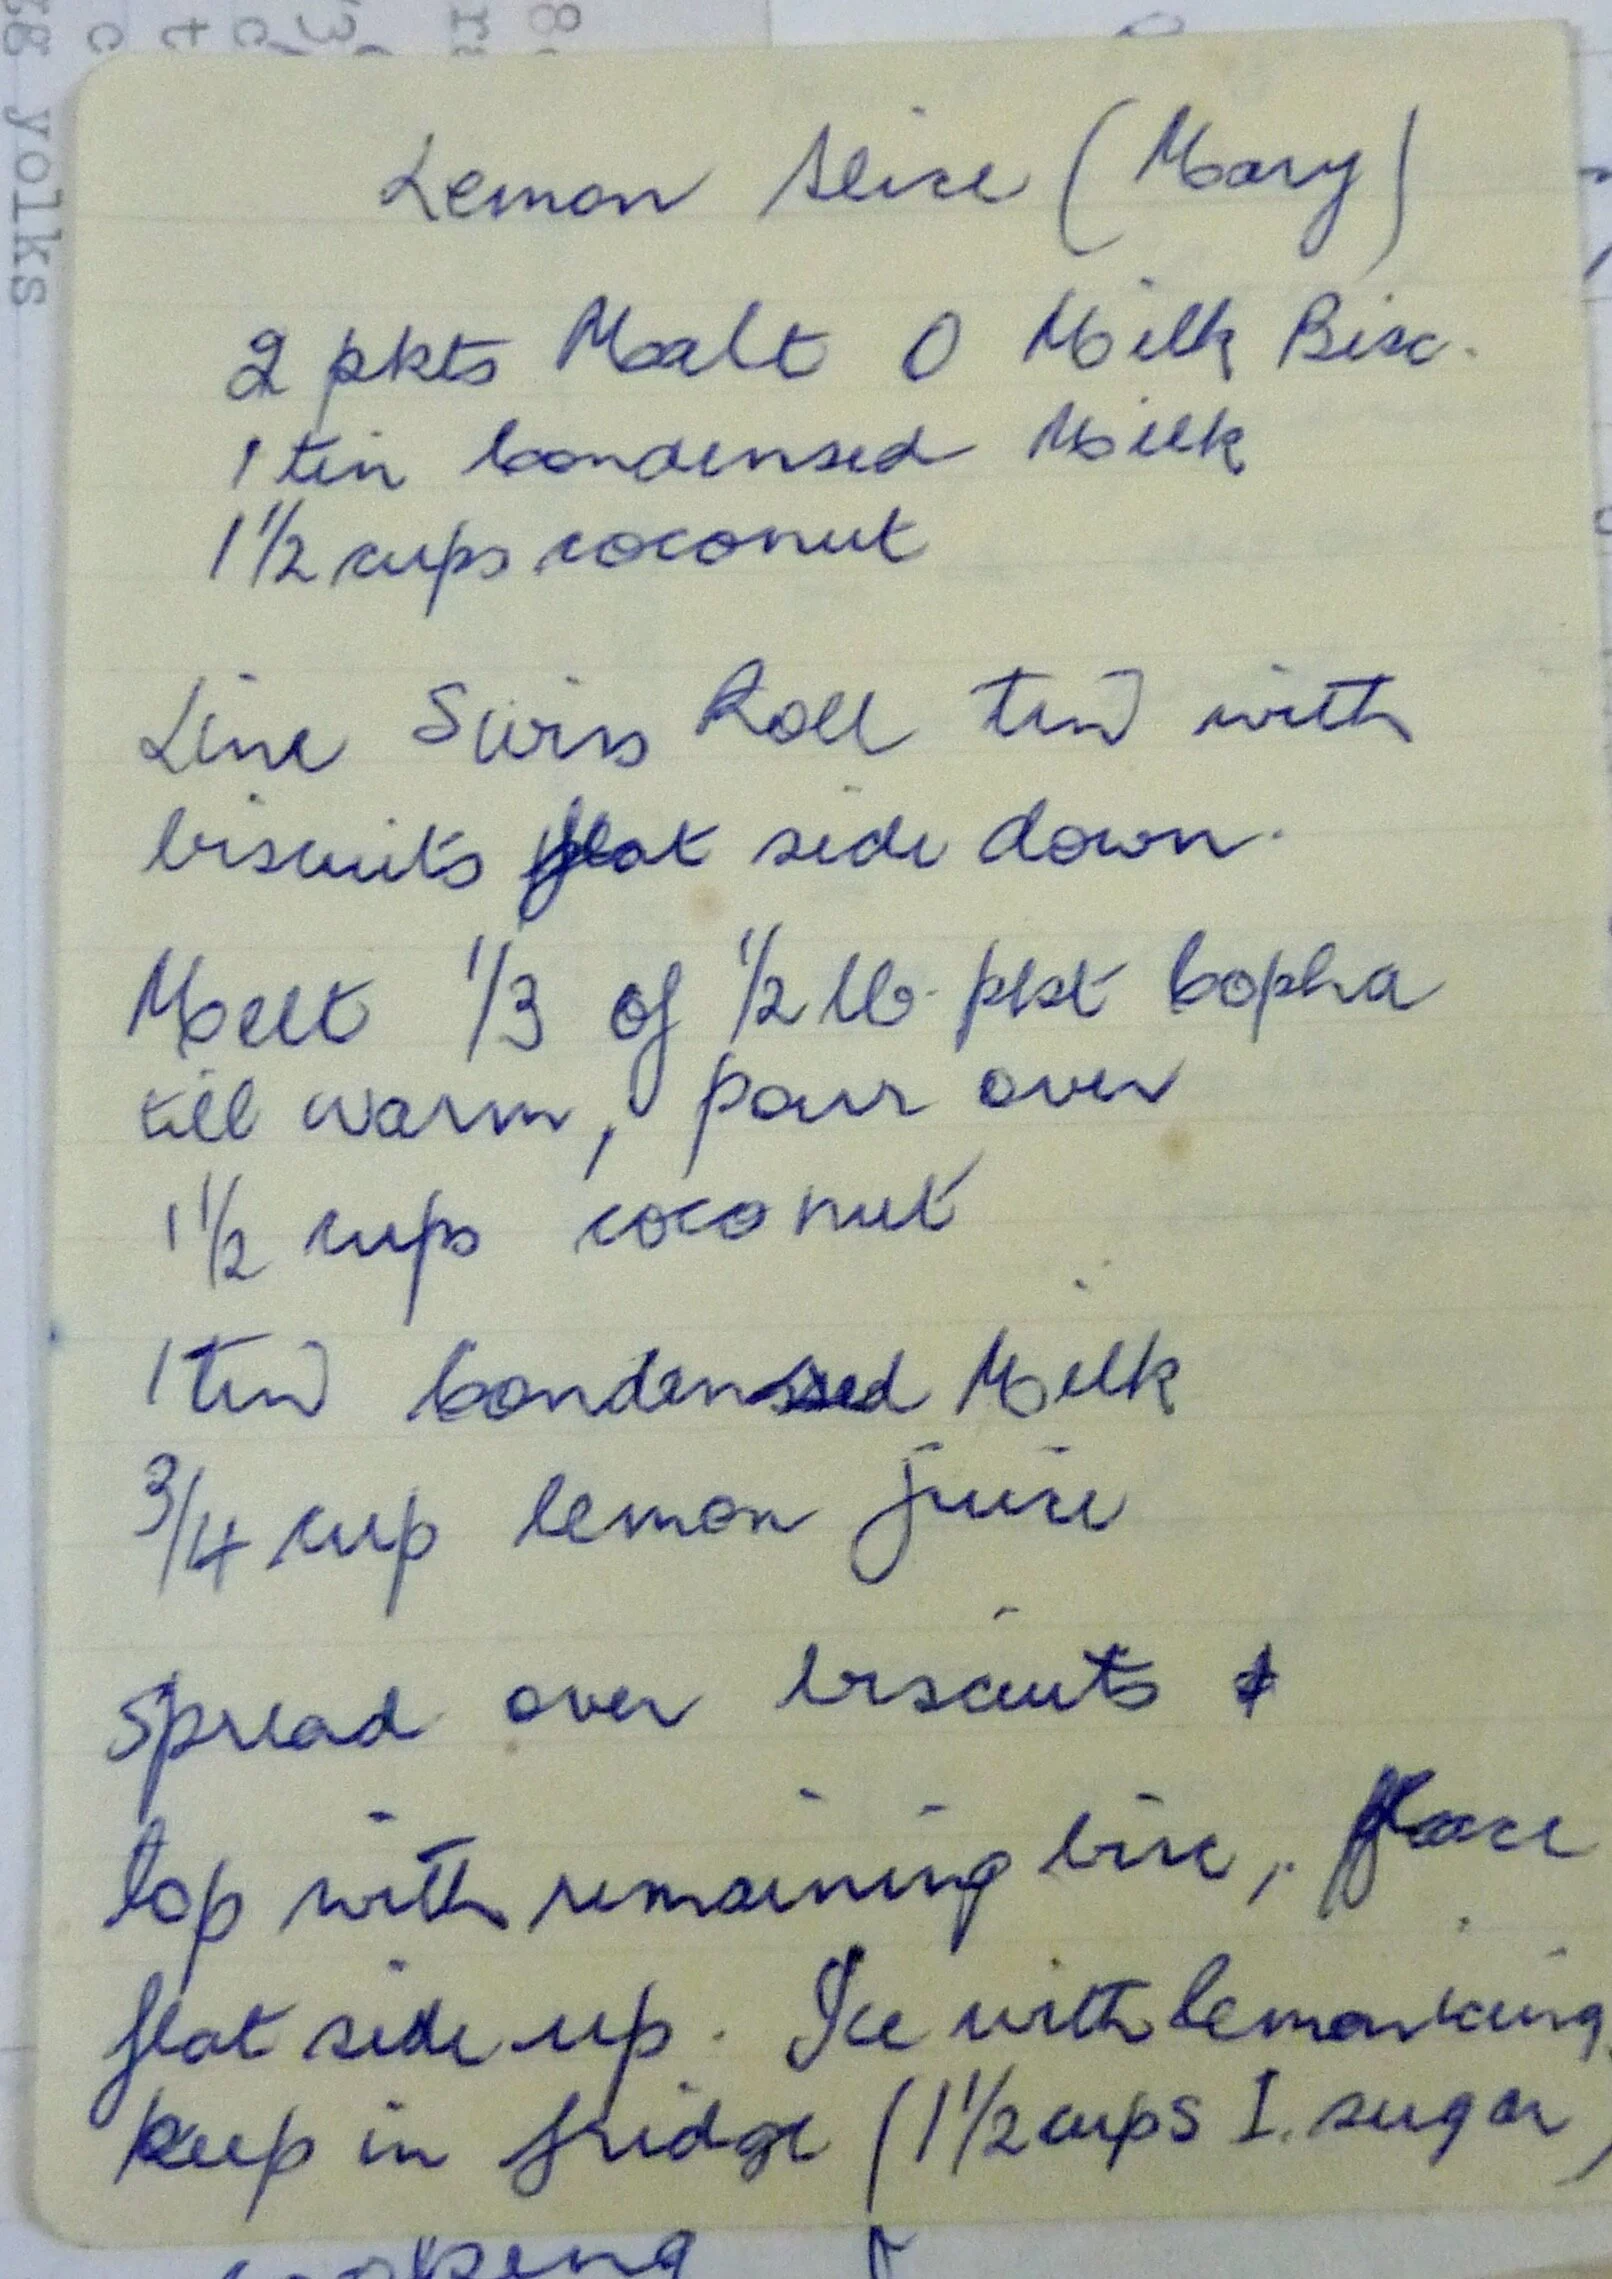 Lemon Slice (Mary)
2 pkts Malt O Milk Bisc.
1 tin Condensed Milk
1 1/2 cups coconut
Line Swiss Roll tin with
biscuits flat side down.
Melt 1/3 of 1/2 lb. pkt Copha
till warm, pour over
1 1/2 cups coconut
1 tin Condensed Milk
3/4 cup lemon juice
Spread over biscuits &
top with remaining bisc, place
flat side up. Ice with lemon icing
keep in fridge (1 1/2 cups I. sugar)
yolks